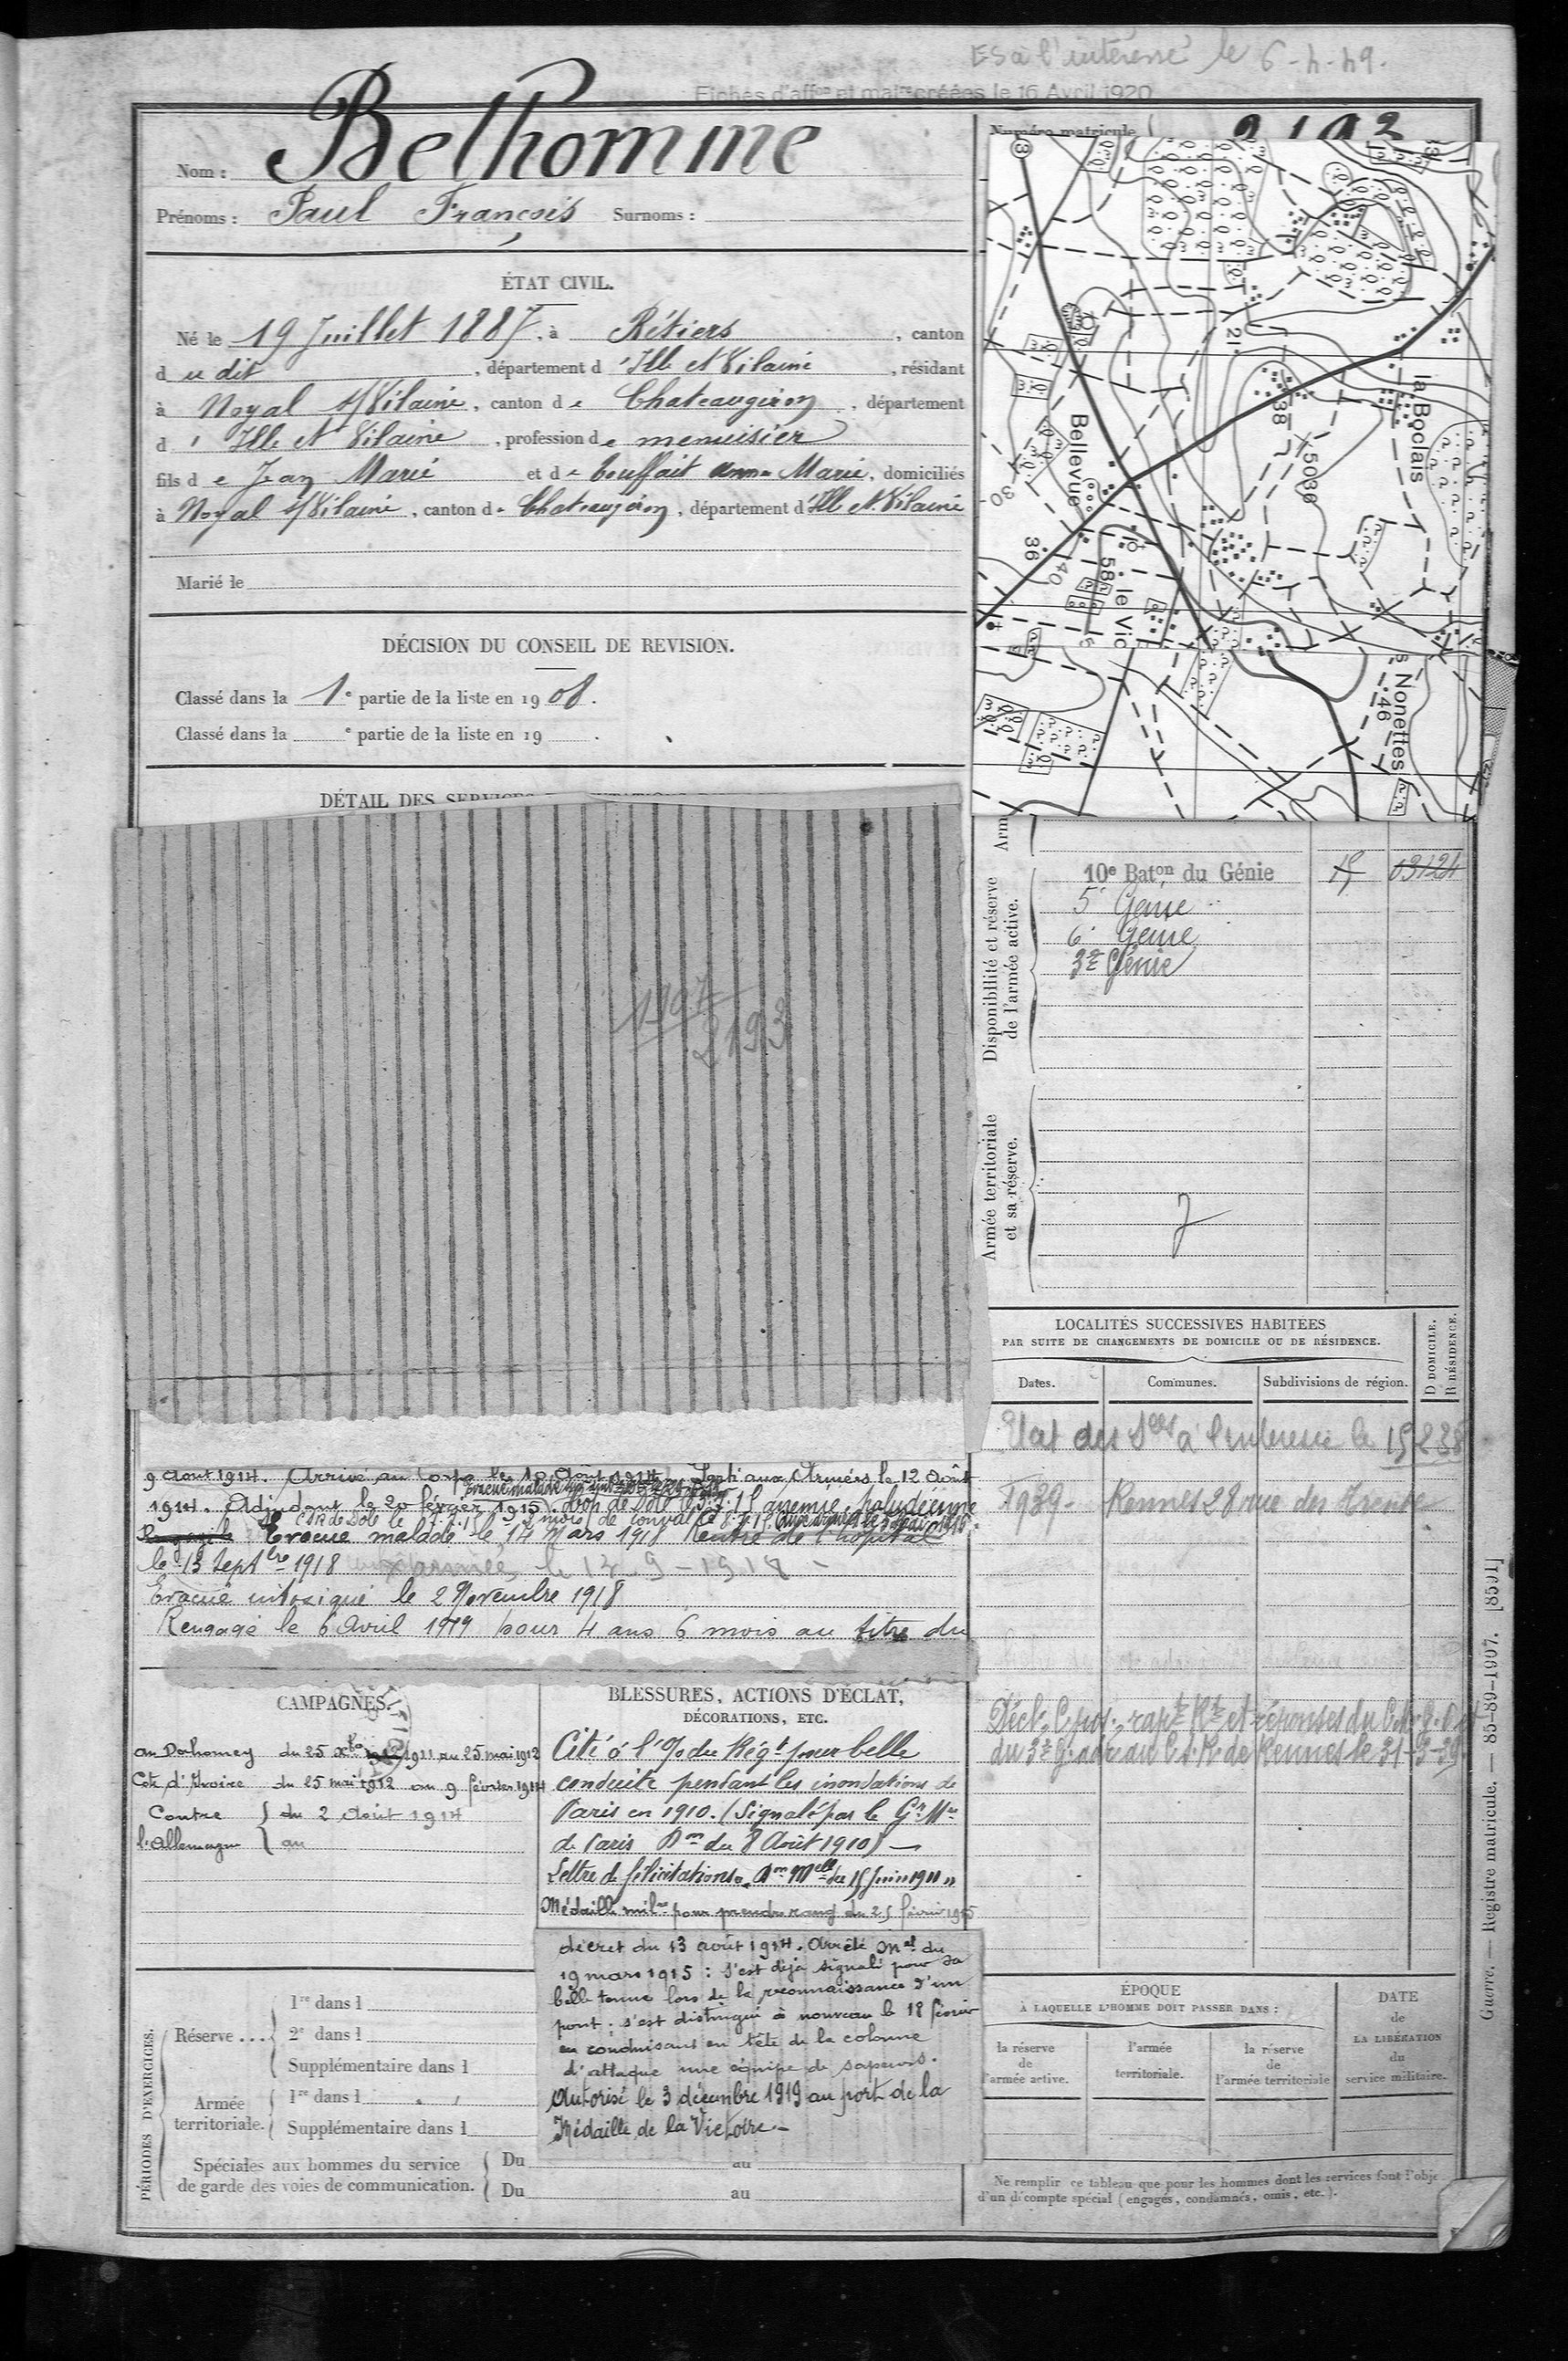 ES à l'intéressé le 6-4-49.
Fiches d'aff<sup>on</sup> et mal<sup>re</sup> créées le 16 Avril 1920
Nom : Belhomme
Prénoms : Paul François Surnoms :
ÉTAT CIVIL.
Né le 19 Juillet 1887, à Rétiers, canton
du dit, département d'Ille et Vilaine, résidant
à Noyal s/Vilaine, canton de Chateaugiron, département
d' Ille et Vilaine, profession de menuisier
fils de Jean Marie et de Bouffait Anna Marie, domiciliés
à Noyal s/Vilaine, canton de Chateaugiron, département d'Ille et Vilaine
Marié le
DÉCISION DU CONSEIL DE REVISION.
Classé dans la 1e partie de la liste en 1908.
Classé dans la e partie de la liste en 19 .
DÉTAIL DES SERVICES
1907
2193
9 Août 1914. Arrivé au corps le 10 Août 1914. Parti aux Armées le 12 Août
1914. Adjudant le 20 février 1915. anémie paludéenne
Evacué malade le 14 Mars 1918 Rentré de l'hôpital
le 13 Septbre 1918 aux armées le 13-9-1918
Evacué intoxiqué le 2 Novembre 1918
Rengagé le 6 Avril 1919 pour 4 ans 6 mois au titre du
CAMPAGNES.
au Dahomey du 25 Xbre 1911 au 25 mai 1912
Côte d'Ivoire du 25 mai 1912 au 9 février 1914
Contre du 2 Août 1914
l'Allemagne au
BLESSURES, ACTIONS D'ÉCLAT,
DÉCORATIONS, ETC.
Cité à l'o/ du Régt pour belle
conduite pendant les inondations de
Paris en 1910. (Signalé par le Gr Mre
de Paris Don du 8 Août 1910) —
Lettre de félicitations. Don Melle du 15 Juin 1911 "
Médaille milre pour prendre rang du 25 février 1915
décret du 13 août 1914. Arrêté Mel du
19 mars 1915 : s'est déjà signalé pour sa
belle tenue lors de la reconnaissance d'un
pont ; s'est distingué à nouveau le 18 février
en conduisant en tête de la colonne
d'attaque une équipe de sapeurs.
Autorisé le 3 décembre 1919 au port de la
Médaille de la Victoire.-
PÉRIODES D'EXERCICES.
Réserve ...
1re dans l
2e dans l
Supplémentaire dans l
Armée territoriale.
1re dans l
Supplémentaire dans l
Spéciales aux hommes du service
de garde des voies de communication.
Du au
Du au
Numéro matricule
la Boclais
Bellevue
le Vic
s Nonettes
13
21
38
5030
30
36
40
58
5
46
Arm
Disponibilité et réserve
de l'armée active.
10e Baton du Génie 15 03124
5e Génie
6e Génie
3e Génie
Armée territoriale
et sa réserve.
LOCALITÉS SUCCESSIVES HABITÉES
PAR SUITE DE CHANGEMENTS DE DOMICILE OU DE RÉSIDENCE.
D DOMICILE.
R RÉSIDENCE.
Dates. Communes. Subdivisions de région.
Etat des Sces à l'intéressé le 15-2-38
1939- Rennes 28 rue des Trente
du 3e Génie au de Rennes le 31-3-39
ÉPOQUE
À LAQUELLE L'HOMME DOIT PASSER DANS :
la réserve
de
l'armée active.
l'armée
territoriale.
la réserve
de
l'armée territoriale
DATE
de
LA LIBÉRATION
du
service militaire.
Ne remplir ce tableau que pour les hommes dont les services font l'obje
d'un décompte spécial (engagés, condamnés, omis, etc.).
Guerre. — Registre matricule. — 85-89-1907. [8591]